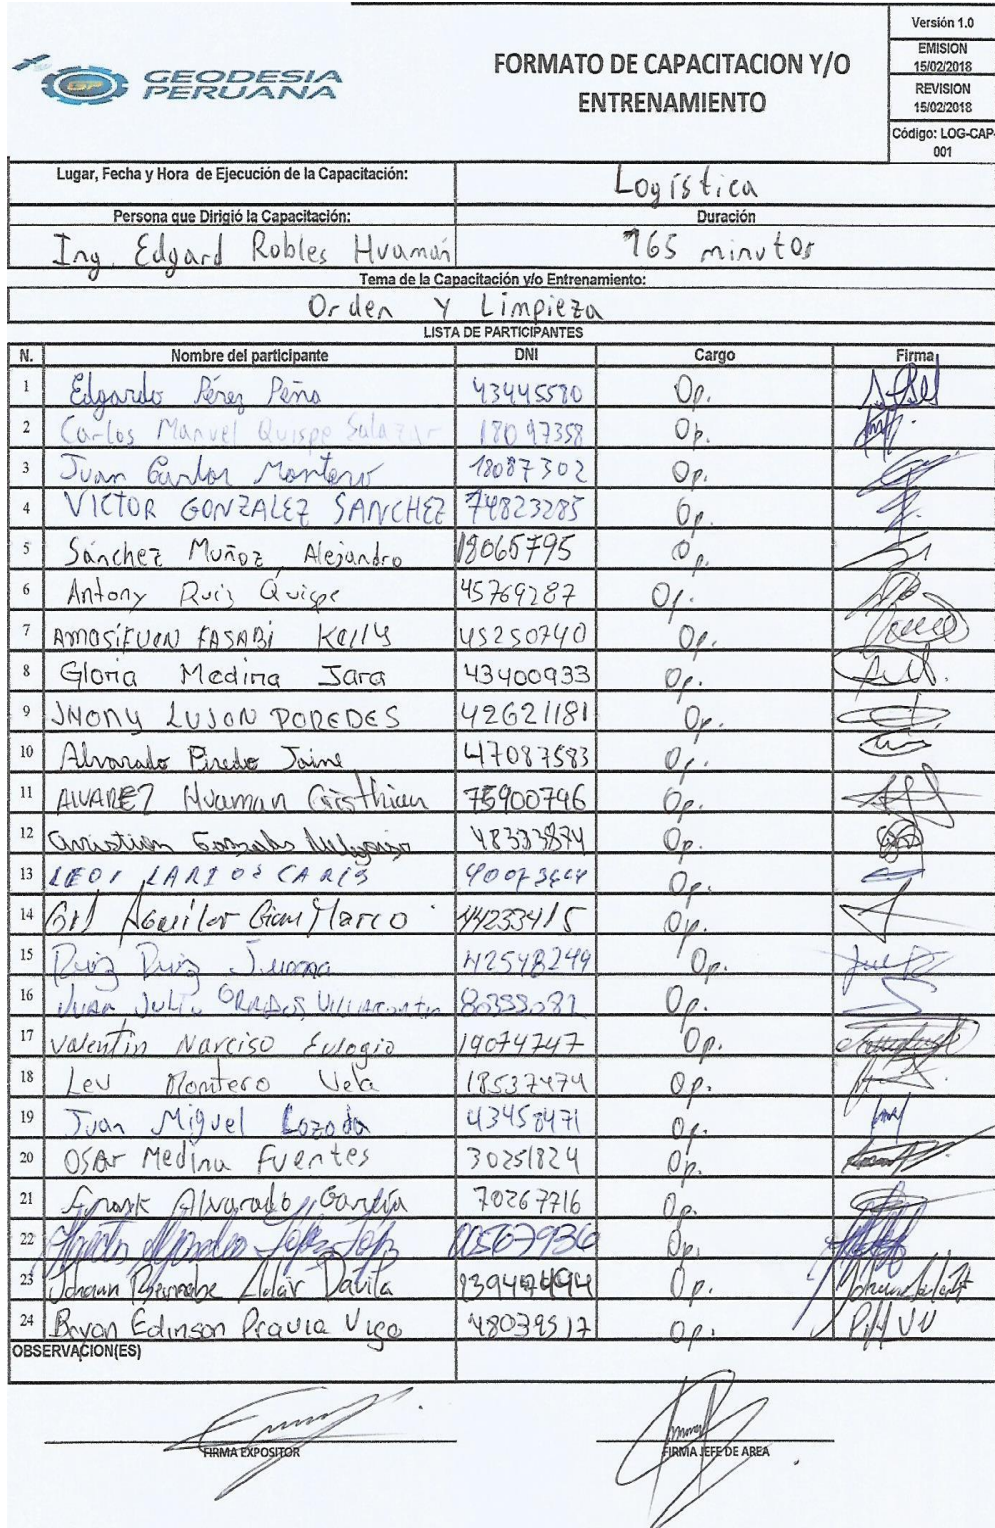 GEODESIA
PERUANA
FORMATO DE CAPACITACION Y/O
ENTRENAMIENTO
Versión 1.0
EMISION
15/02/2018
REVISION
15/02/2018
Código: LOG-CAP-
001
Lugar, Fecha y Hora de Ejecución de la Capacitación:
Logística
Persona que Dirigió la Capacitación: Duración
Ing. Edgard Robles Huamán 165 minutos
Tema de la Capacitación y/o Entrenamiento:
Orden y Limpieza
LISTA DE PARTICIPANTES
N. Nombre del participante DNI Cargo Firma
1 Edgardo Pérez Peña 43445580 Op.
2 Carlos Manuel Quispe Salazar 18097358 Op.
3 Juan Carlos Montero 18087302 Op.
4 VICTOR GONZALEZ SANCHEZ 74823285 Op.
5 Sánchez Muñoz Alejandro 18065795 Op.
6 Antony Ruiz Quispe 45769287 Op.
7 AMASIFUEN FASABI Kelly 45250740 Op.
8 Gloria Medina Jara 43400933 Op.
9 JHONY LUJON POREDES 42621181 Op.
10 Alvarado Pinedo Jaime 47087583 Op.
11 ALVAREZ Huaman Cristhian 75900746 Op.
12 Christian Gonzales 48333874 Op.
13 Op.
14 Gil Aguilar Gian Marco 44233415 Op.
15 Ruiz Ruiz Juana 42548249 Op.
16 Juan Julio Op.
17 Valentin Narciso Eulogio 19074747 Op.
18 Leu Montero Vela 18537474 Op.
19 Juan Miguel Lozada 43458471 Op.
20 OSCAr Medina Fuentes 30251824 Op.
21 Frank Alvarado García 70267716 Op.
22 López López 00567936 Op.
23 Johann Bernabe Aldar Davila Op.
24 Bryan Edinson Pravia Vigo 48039517 Op.
OBSERVACION(ES)
FIRMA EXPOSITOR FIRMA JEFE DE AREA